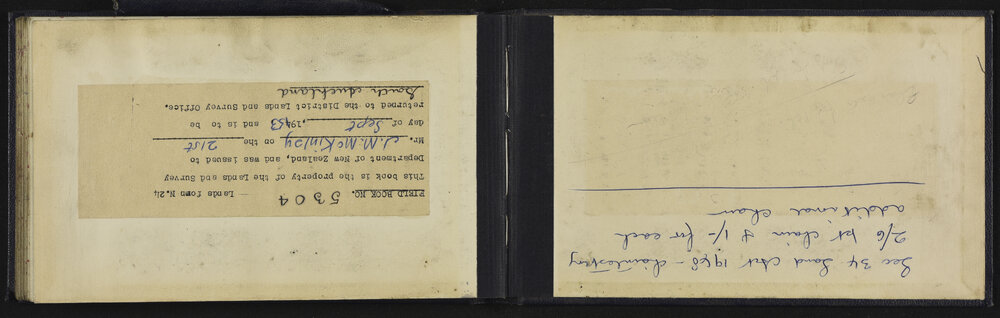 See 34 Land Act 1948 - chaintesting
2/6 pr. chain & 1/- for each
additional chain
FIELD BOOK NO. 5304 — Lands form N.24
This book is the property of the Lands and Survey
Department of New Zealand, and was issued to
Mr. J.M. McKinlay on the 21st
day of Sept , 1953 and is to be
returned to the District Lands and Survey Office.
South Auckland